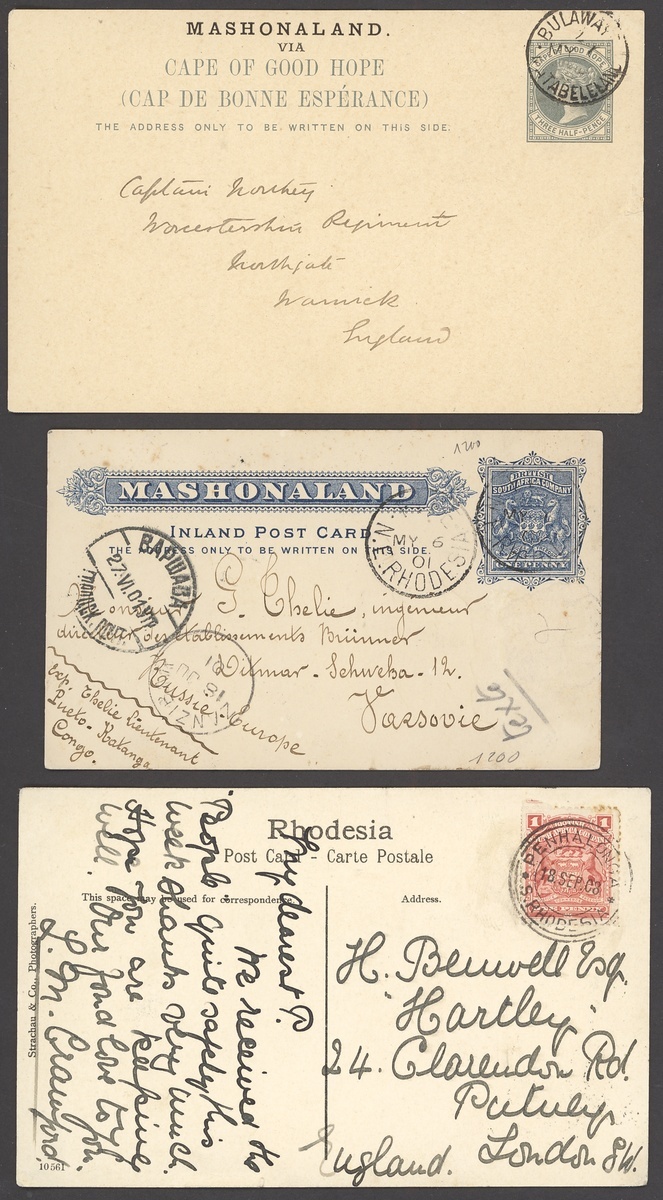 MASHONALAND.
VIA
CAPE OF GOOD HOPE
(CAP DE BONNE ESPÉRANCE)
THE ADDRESS ONLY TO BE WRITTEN ON THIS SIDE.
BULAWAY
MATABELELAND
CAPE OF GOOD HOPE
THREE HALF-PENCE
Captain Northey
Worcestershire Regiment
Northgate
Warwick
England
1200
MASHONALAND
INLAND POST CARD
THE ADDRESS ONLY TO BE WRITTEN ON THIS SIDE.
BRITISH
SOUTH AFRICA COMPANY
ONE PENNY
MY 6
01
N.E. RHODESIA
ВАРШАВА
27.VI.01
Monsieur G. Thelie, ingenieur
directeur des établissements Brünner
Ditmar-Schweha-12.
Russie-Europe
Varsovie
18
01
exp. Thelie lieutenant
Pueto-Katanga
Congo.
texte
1200
Rhodesia
Post Card - Carte Postale
This space may be used for correspondence.
Address.
1 1
PENNY
PENHALONGA
18 SEP. 08
S. RHODESIA
My dearest P.
We received the
"People" quite safely this
week thanks very much.
Hope you are keeping
well. Our fond love to you.
L. M. Crawford.
H. Benwell Esq.
"Hartley"
24. Clarendon Rd.
Putney
London SW.
England.
Strachan & Co., Photographers.
10561